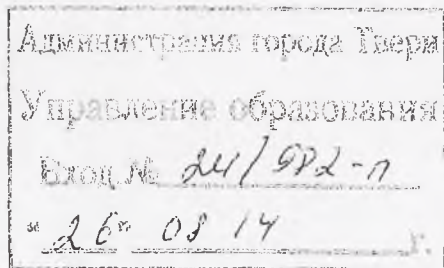 Администрация города Твери
Управление образования
Вход. № 24/982-п
"26" 08 14 г.